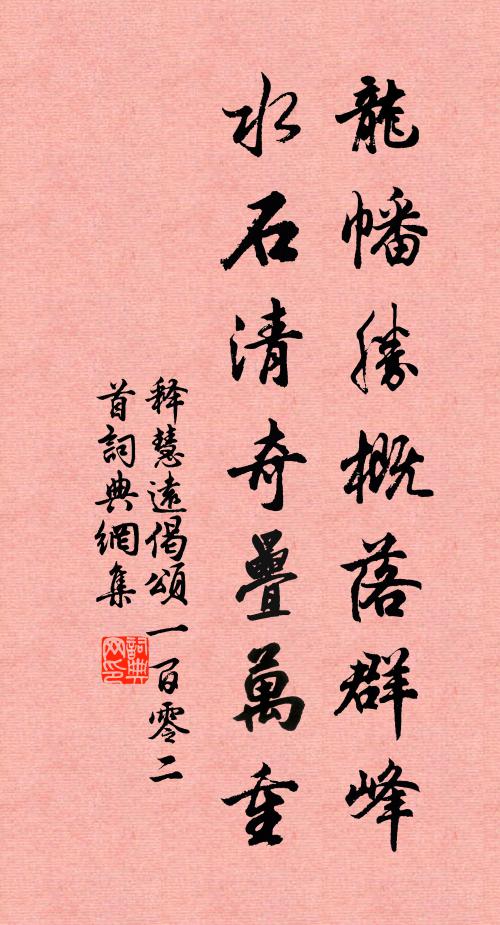 龍幡勝概落群峰
水石清奇疊萬重
释慧遠偈頌一百零二
首詞典網集
詞典
网印